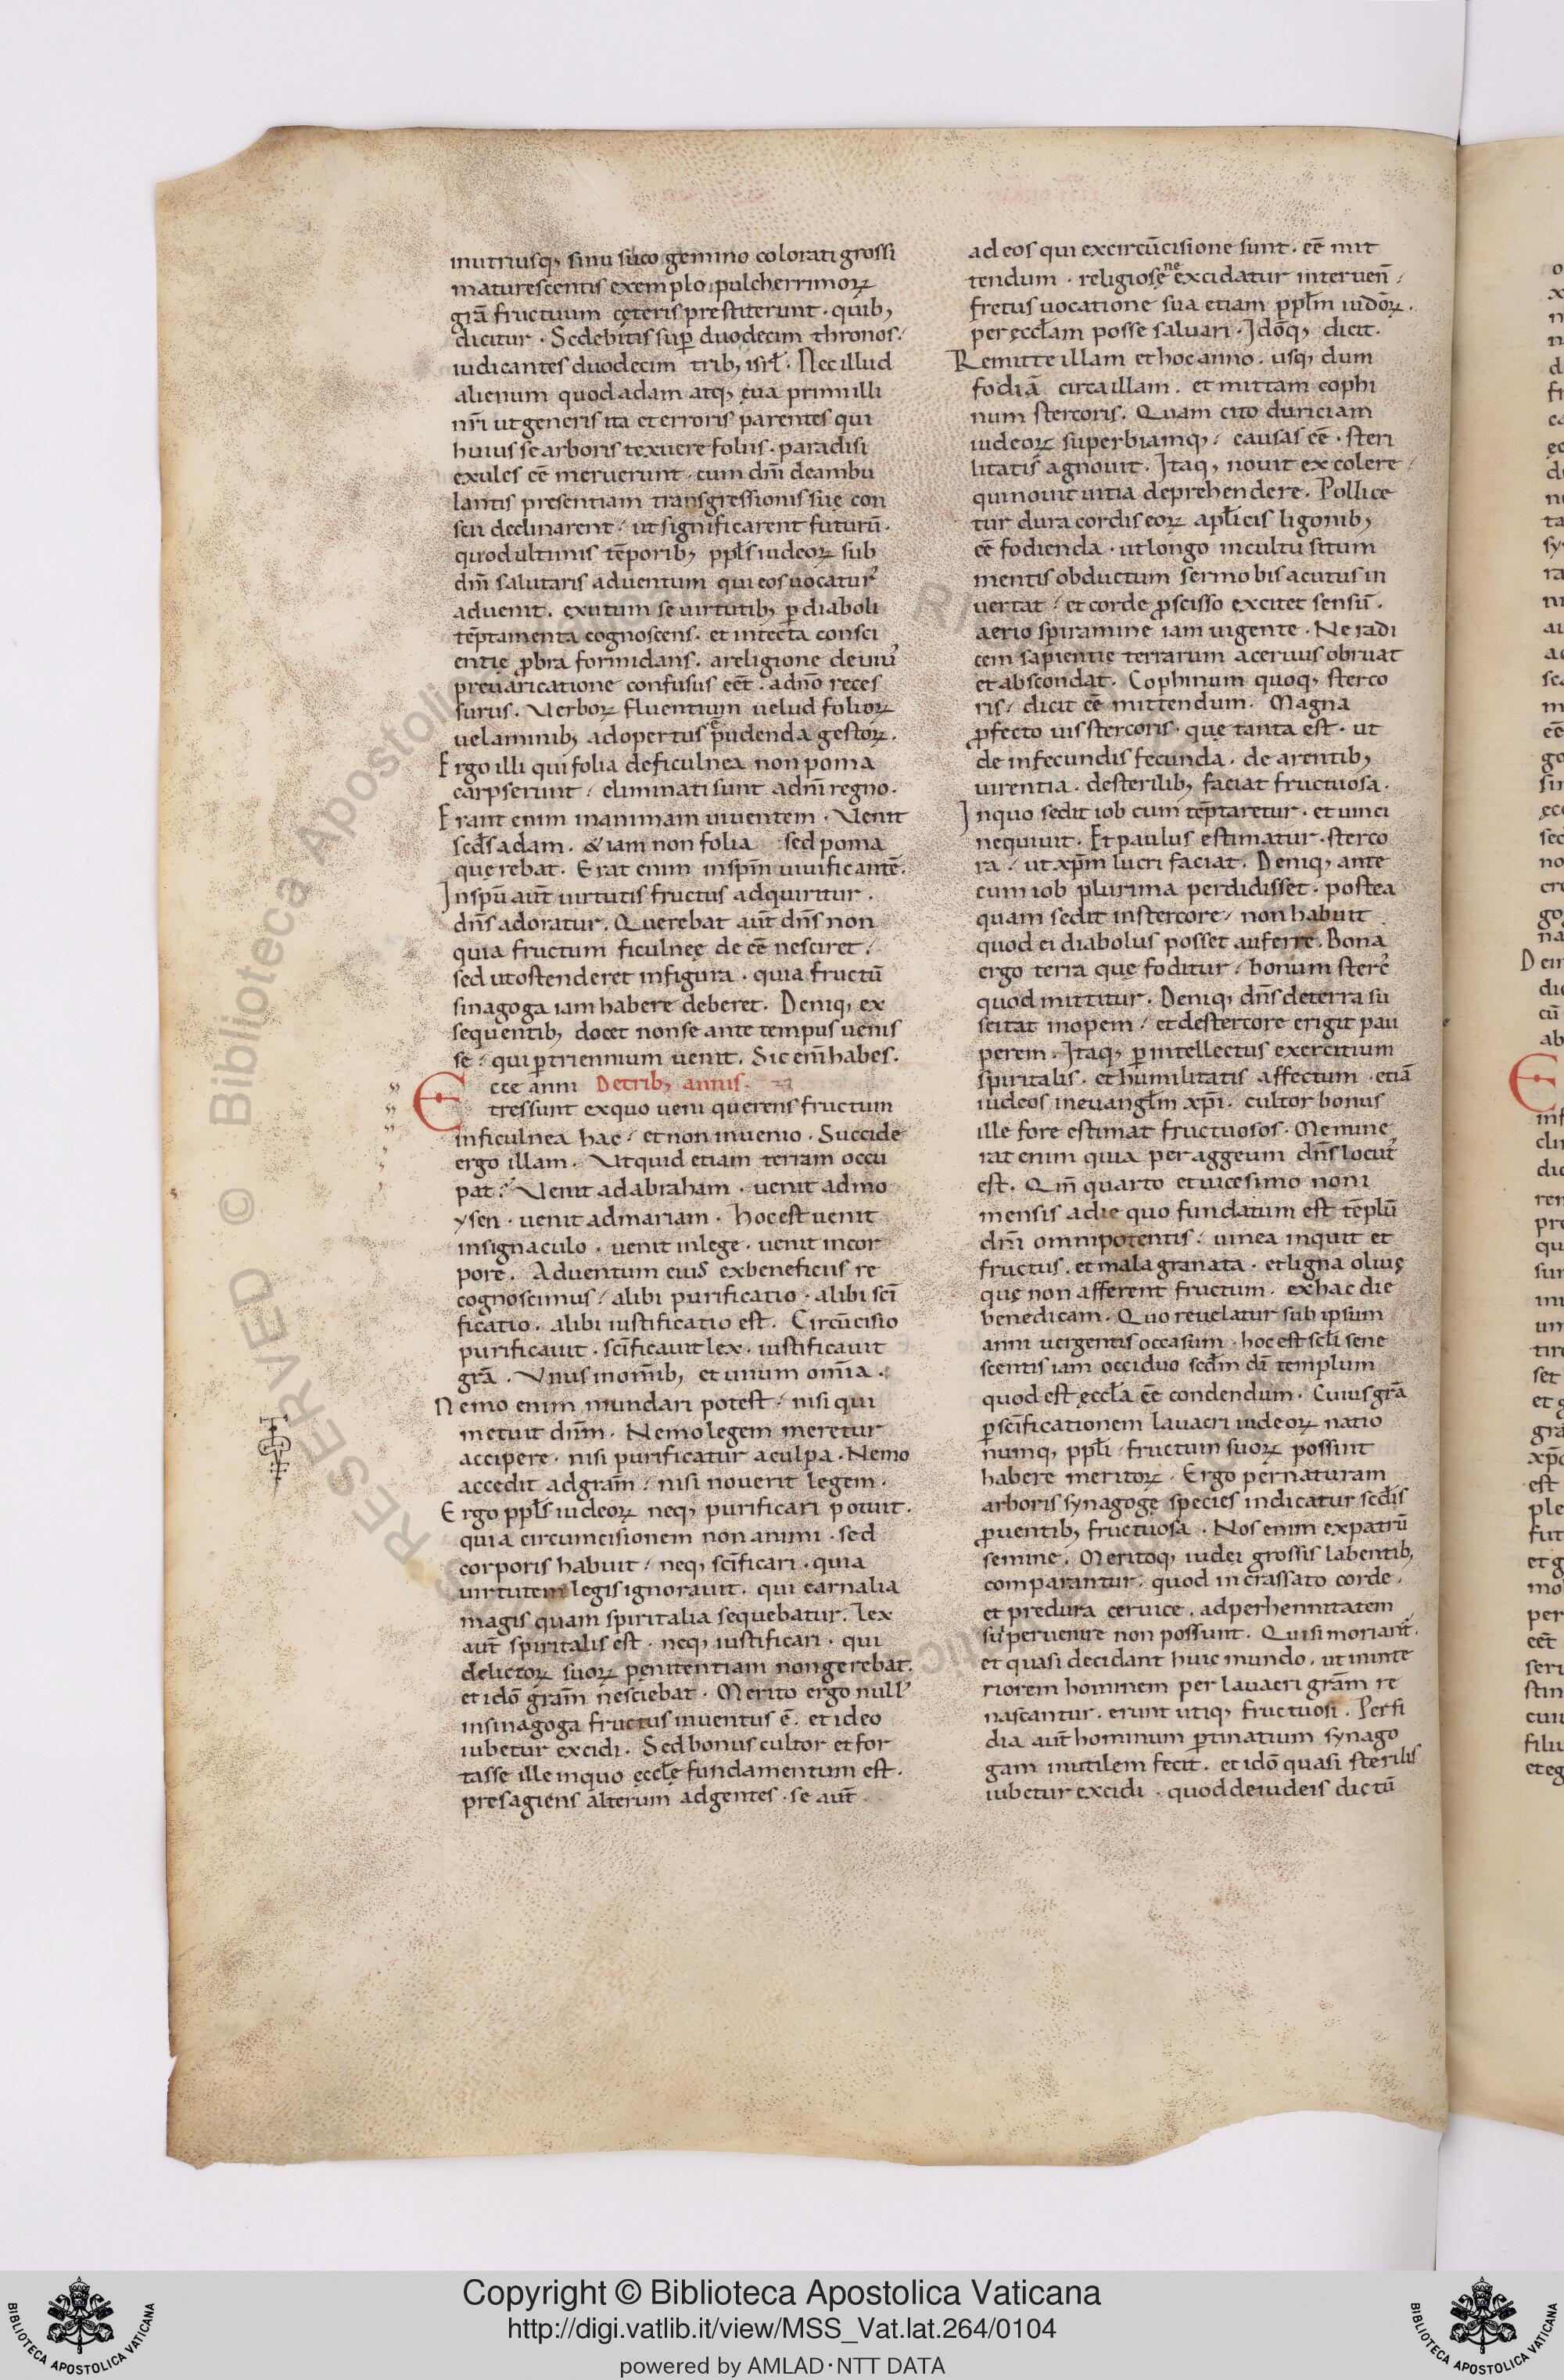 inutriusq; sinu suco gemino colorati grossi
maturescentis exemplo pulcherrimoꝝ
grã fructuum ceteris prestiterunt · quib;
dicitur · Sedebitis sup̃ duodecim thronos ·
iudicantes duodecim trib; isrł · Nec illud
alienum quod adam atq; eua primi illi
nr̃i ut generis ita et erroris parentes qui
huius se arboris texuere foliis · paradisi
exules eẽ meruerunt · cum dñi deambu
lantis presentiam transgressionis suę con
scii declinarent · ut significarent futurũ ·
quod ultimis tẽporib; ppłs iudeoꝝ sub
dñi salutaris aduentum qui eos uocatur᾽
aduenit · exutum se uirtutib; ꝑ diaboli
tẽptamenta cognoscens · et intecta consci
entię ꝓbra formidans · areligione deuiu᾽
preuaricatione confusus eẽt · adño reces
surus · Verboꝝ fluentium uelud folioꝝ
uelaminib; adopertus pudenda gestoꝝ ·
Ergo illi qui folia deficulnea non poma
carpserunt · eliminati sunt adñi regno ·
Erant enim inanimam uiuentem · Venit
scd̃s adam · & iam non folia sed poma
querebat · Erat enim inspm̃ uiuificantẽ ·
Inspũ aut̃ uirtutis fructus adquiritur ·
dñs adoratur · Querebat aut̃ dñs non
quia fructum ficulneę deeẽ nesciret ·
sed utostenderet infigura · quia fructũ
sinagoga iam habere deberet · Deniq; ex
sequentib; docet nonse ante tempus uenis
se · qui ꝑtriennium uenit · Sic eni᷉ habes ·
Ecce anni Detrib; annis ·
tressunt exquo ueni querens fructum
inficulnea hac · et non inuenio · Succide
ergo illam · Vtquid etiam terram occu
pat · Venit adabraham · uenit admo
ysen · uenit admariam · hocest uenit
insignaculo · uenit inlege · uenit incor
pore · Aduentum eius exbeneficiis re
cognoscimus · alibi purificatio · alibi scĩ
ficatio · alibi iustificatio est · Circũcisio
purificauit · scĩficauit lex · iustificauit
grã · Vnus inom̃ib; et unum om̃ia ·
Nemo enim mundari potest · nisi qui
metuit dñm · Nemo legem meretur
accipere · nisi purificatur aculpa · Nemo
accedit adgram̃ · nisi nouerit legem ·
Ergo ppłs iudeoꝝ neq; purificari potuit ·
quia circumcisionem non animi · sed
corporis habuit · neq; scĩficari · quia
uirtutem legis ignorauit · qui carnalia
magis quam spiritalia sequebatur · Lex
aut̃ spiritalis est · neq; iustificari · qui
delictoꝝ suoꝝ penitentiam nongerebat ·
et idõ gram̃ nesciebat · Merito ergo null᾽
insinagoga fructus inuentus ẽ · et ideo
iubetur excidi · Sed bonus cultor et for
tasse ille inquo ęccłę fundamentum est ·
presagiens alterum adgentes · se aut̃
ad eos qui excircũcisione sunt · eẽ mit
tendum · religiosę ne excidatur interuen̄ ·
fretus uocatione sua etiam ppłm iudõꝝ ·
per ęccłam posse saluari · Idõq; dicit ·
Remitte illam et hoc anno · usq; dum
fodiã circa illam · et mittam cophi
num stercoris · Quam cito duriciam
iudeoꝝ superbiamq; · causas eẽ · steri
litatis agnouit · Itaq; nouit excolere
quinouit uitia deprehendere · Pollice
tur dura cordis eoꝝ apłicis ligonib;
eẽ fodienda · utlongo incultu situm
mentis obductum sermo bis acutus in
uertat · et corde ꝓscisso excitet sensũ ·
aerio spiramine iam uigente · Ne radi
cem sapientię terrarum aceruus obruat
et abscondat · Cophinum quoq; sterco
ris · dicit eẽ mittendum · Magna
ꝓfecto uis stercoris · quę tanta est · ut
de infecundis fecunda · de arentib;
uirentia · desterilib; faciat fructuosa ·
Inquo sedit iob cum tẽptaretur · et uinci
nequiuit · Et paulus estimatur · sterco
ra · ut xpm̃ lucri faciat · Deniq; ante
cum iob plurima perdidisset · postea
quam sedit instercore · non habuit
quod ei diabolus posset auferre · Bona
ergo terra quę foditur · bonum sterc᾽
quod mittitur · Deniq; dñs deterra su
scitat inopem · et destercore erigit pau
perem · Itaq; ꝑintellectus exercitium
spiritalis · et humilitatis affectum · etiã
iudeos ineuangłm xpi᷉ · cultor bonus
ille fore estimat fructuosos · Memine
rat enim quia per aggeum dñs locut᾽
est · Qm̃ quarto et uicesimo noni
mensis adie quo fundatum est tẽplũ
dñi omnipotentis · uinea inquit et
fructus · et mala granata · et ligna oliuę
quę non afferent fructum · exhac die
benedicam · Quo reuelatur sub ipsum
anni uergentis occasum · hoc est scłi sene
scentis iam occiduo scd̃m dĩ templum
quod est ęccła eẽ condendum · Cuius grã
ꝑscĩficationem lauacri iudeoꝝ natio
numq; ppłi fructum suoꝝ possint
habere meritoꝝ · Ergo pernaturam
arboris synagogę species indicatur scd̃is
ꝓuentib; fructuosa · Nos enim expatrũ
semine · Meritoq; iudei grossis labentib;
comparantur · quod incrassato corde ·
et predura ceruice · adperhennitatem
superuenire non possunt · Qui si moriant̃ ·
et quasi decidant huic mundo · ut inmte
riorem hominem per lauacri gram̃ re
nascantur · erunt utiq; fructuosi · Perfi
dia aut̃ hominum ꝑtinatium synago
gam inutilem fecit · et idõ quasi sterilis
iubetur excidi · quod deiudeis dictũ
Copyright © Biblioteca Apostolica Vaticana
http://digi.vatlib.it/view/MSS_Vat.lat.264/0104
powered by AMLAD·NTT DATA